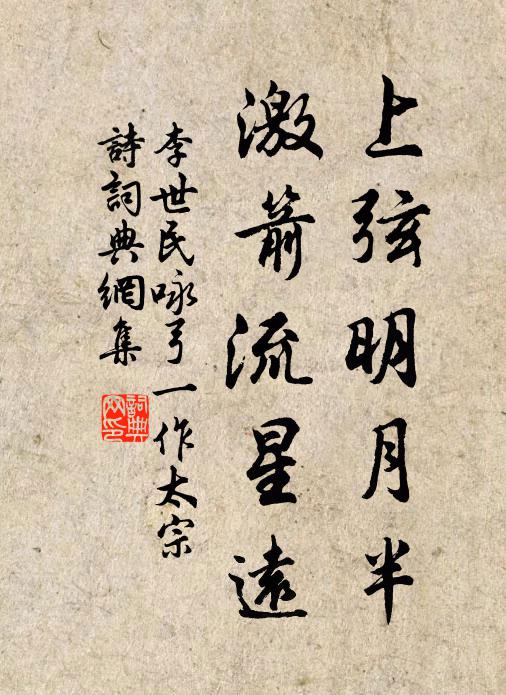 上弦明月半
激箭流星遠
李世民咏弓一作太宗
詩詞典網集
詞典
网印